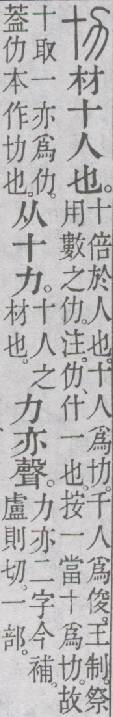 材十人也。十倍於人也。十人爲。千人爲俊。王制。祭用數之仂。注。仂、什一也。按一當十爲。故
十取一亦爲仂。葢仂本作也。从十力。十人之材也。力亦聲。力亦二字今補。盧則切。一部。